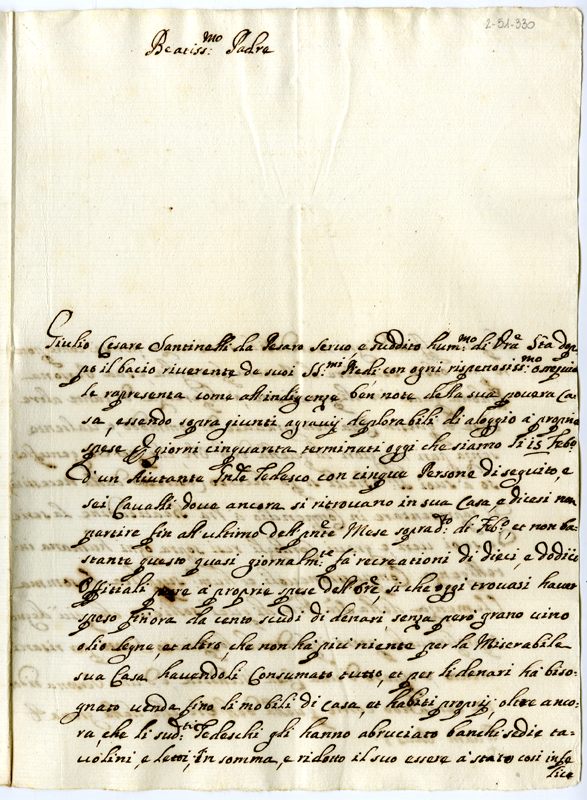 2-51-330
Beatiss:mo Padre
Giulio Cesare Santinelli da Pesaro servo, e suddito hum:mo di Vra Sta dop=
po il bacio riverente de suoi SS:mi Piedi con ogni rispettosiss:mo ossequio
le rapresenta come all'indigenze ben note della sua povera Ca=
sa, essendo sopra giunti agravij deplorabili di aloggio à proprie
spese giorni cinquanta terminati oggi che siamo li 15 Febo
d'un Aiutante Tedesco con cinque Persone di seguito, e
sei Cavalli dove ancora si ritrovano in sua Casa, e dicesi non
partire fin all'ultimo dell' pnte Mese soprado di Febo, et non ba=
stante questo quasi giornalmte fà recreationi di dieci, e dodici
Officiali pure a proprie spese dell' Ore, si che oggi trovasi haver
speso finora da cento scudi di denari, senza però grano vino
olio legne, et altro, che non hà più niente per la Miserabile
sua Casa havendoli Consumato tutto, et per li denari hà biso=
gnato venda fino li mobili di Casa, et habiti proprij oltre anco=
ra, che li sudti Tedeschi gli hanno abruciato banchi sedie ta=
volini, e letti, In somma, e ridotto il suo essere à stato così infe
lice